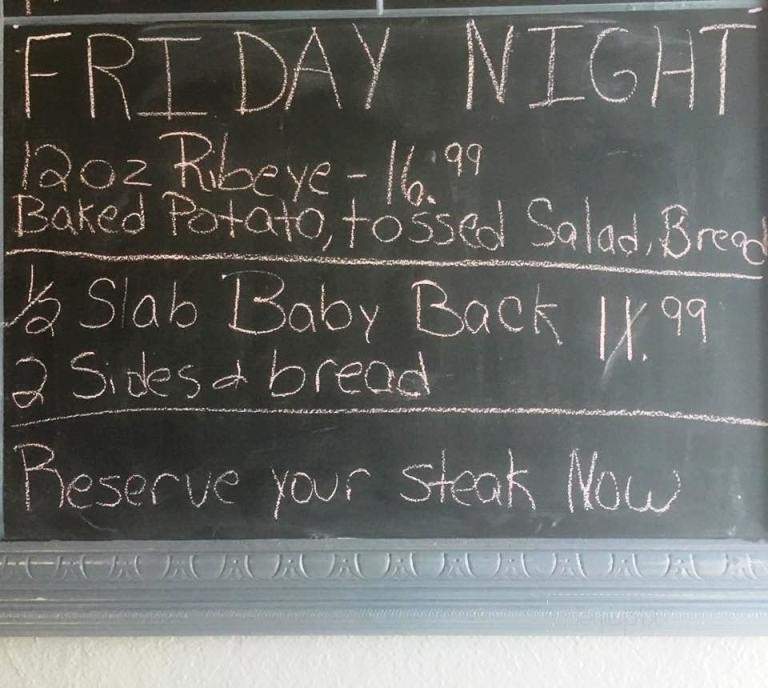 FRIDAY NIGHT
12oz Ribeye - 16.99
Baked Potato, tossed Salad, Bread
1/2 Slab Baby Back 11.99
2 Sides & bread
Reserve your steak Now